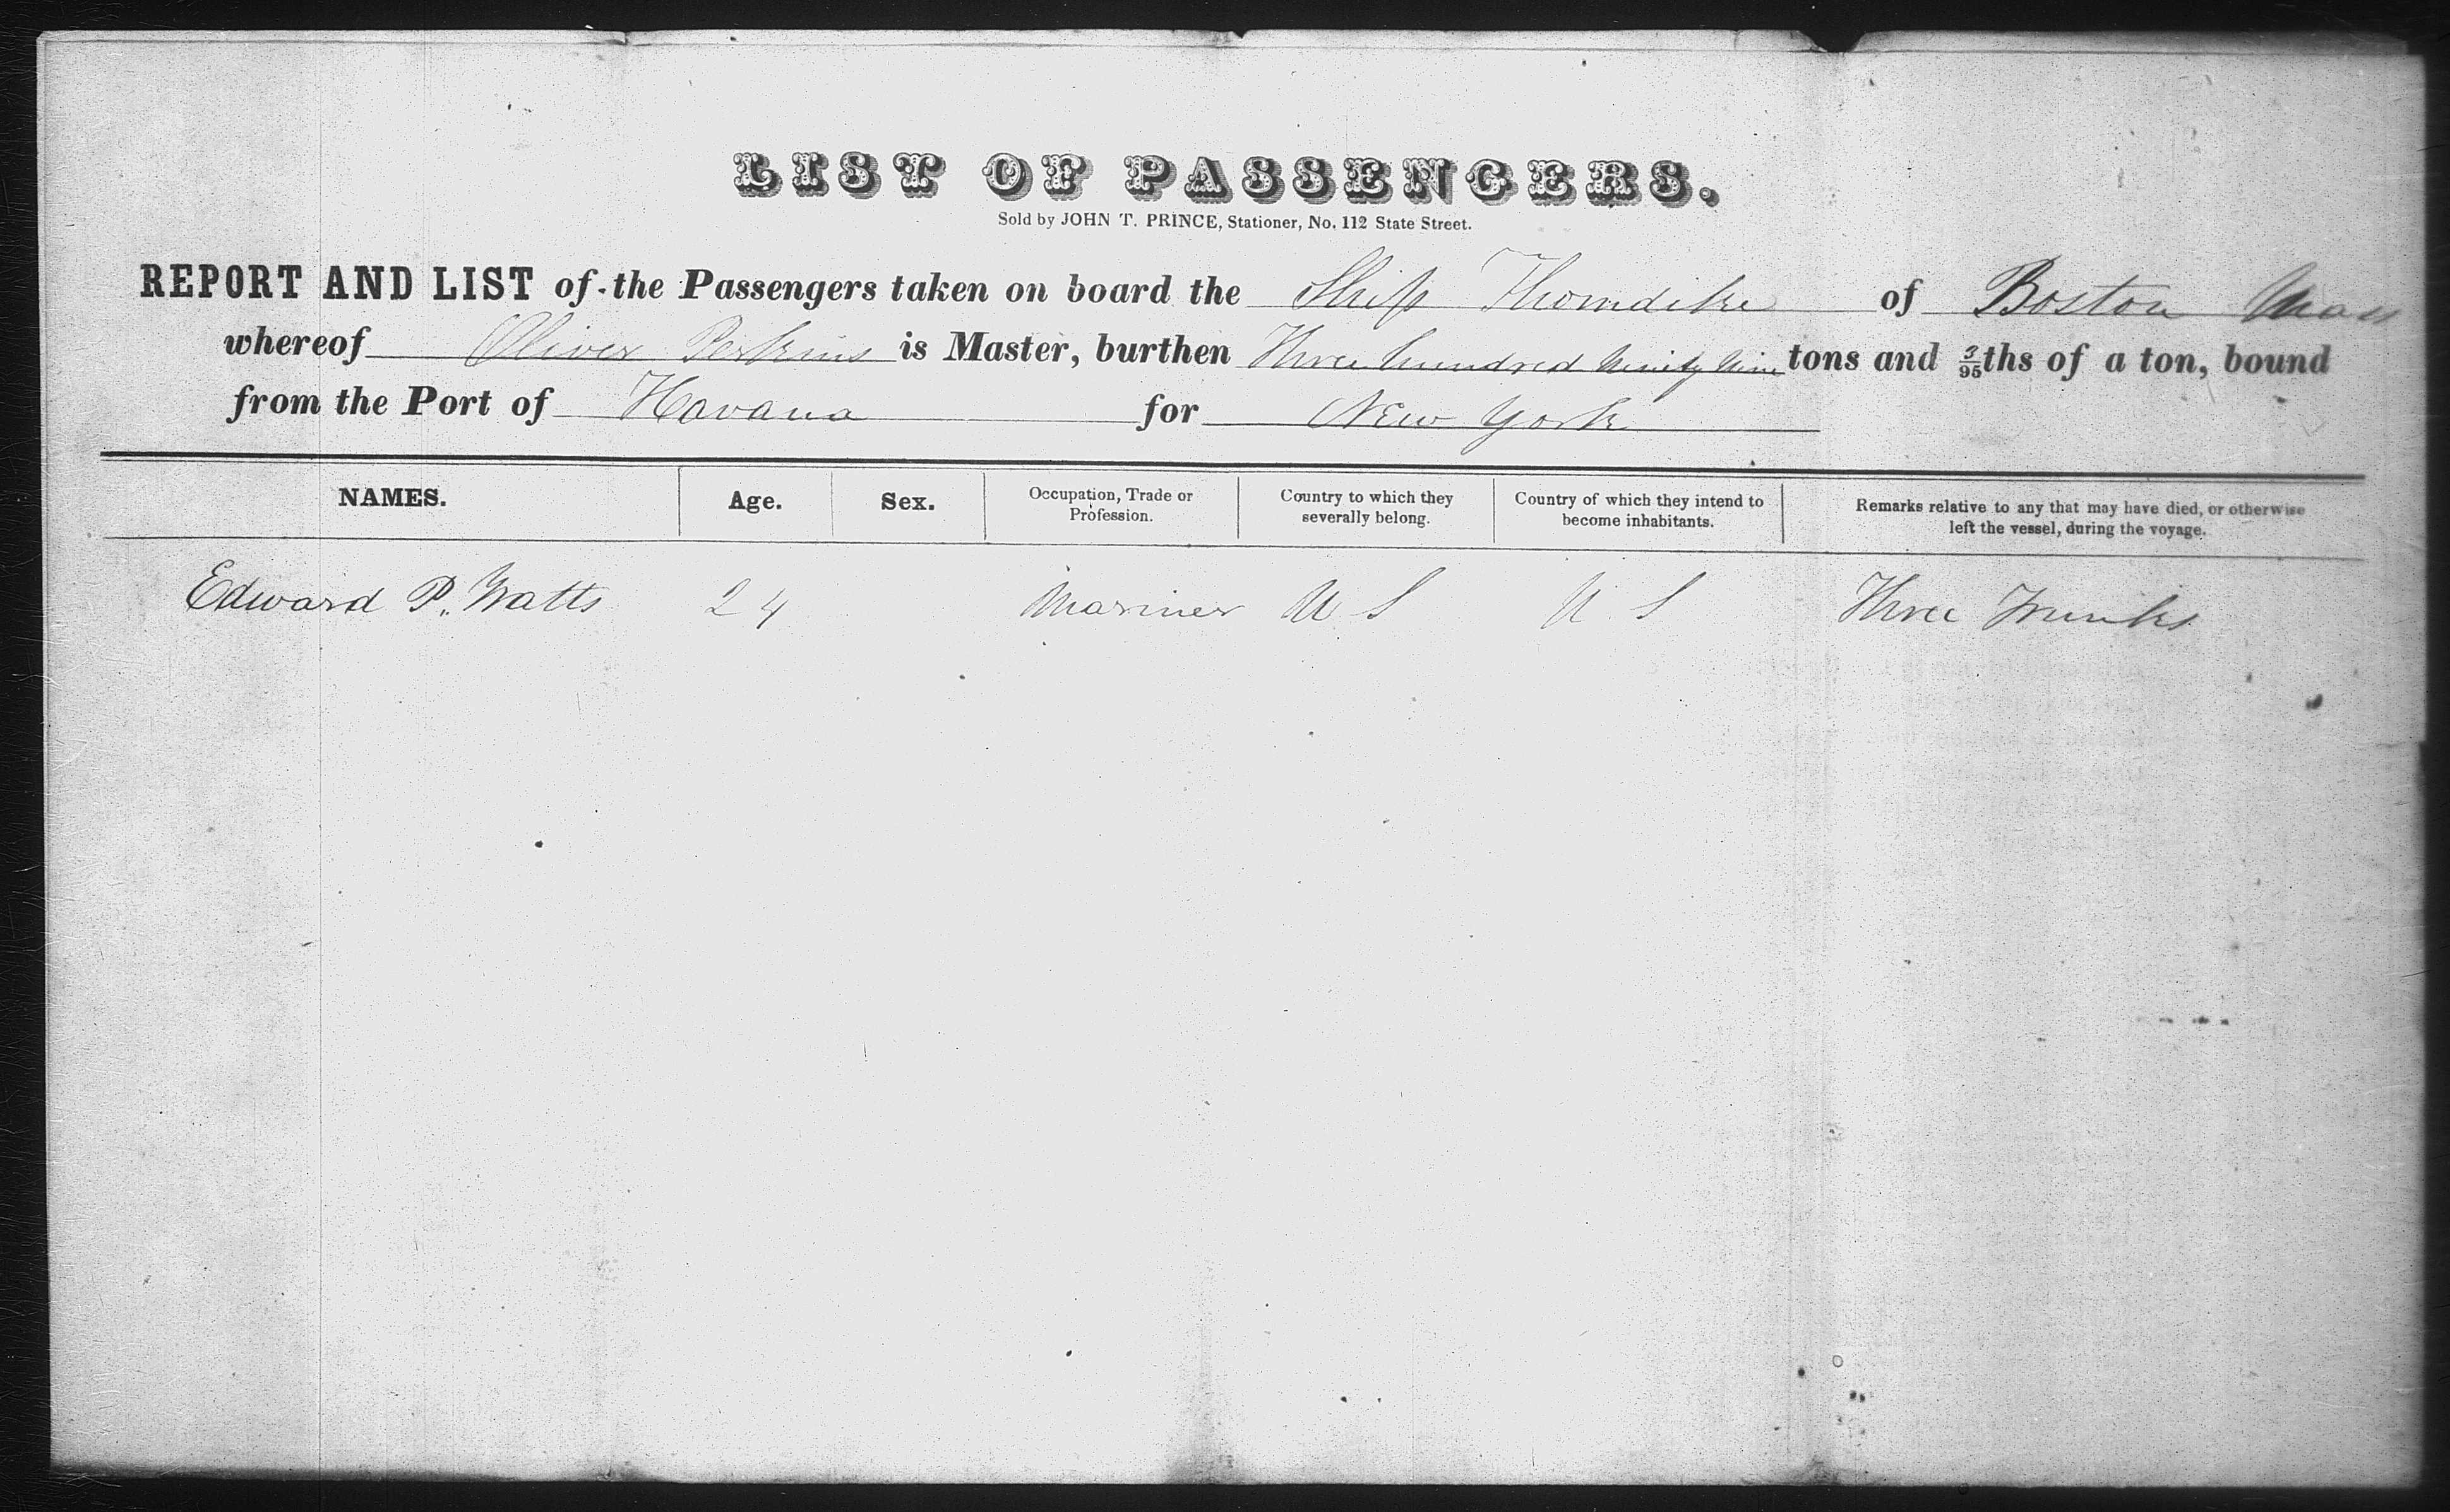 LIST OF PASSENGERS.
Sold by JOHN T. PRINCE, Stationer, No. 112 State Street.
REPORT AND LIST of the Passengers taken on board the Ship Thorndike of Boston Mass
whereof Oliver Perkins is Master, burthen Three hundred Ninety Nine tons and 3/95ths of a ton, bound
from the Port of Havana for New York
NAMES. Age. Sex. Occupation, Trade or Profession. Country to which they severally belong. Country of which they intend to become inhabitants. Remarks relative to any that may have died, or otherwise left the vessel, during the voyage.
Edward P. Watts 24 Mariner U S U S Three Trunks